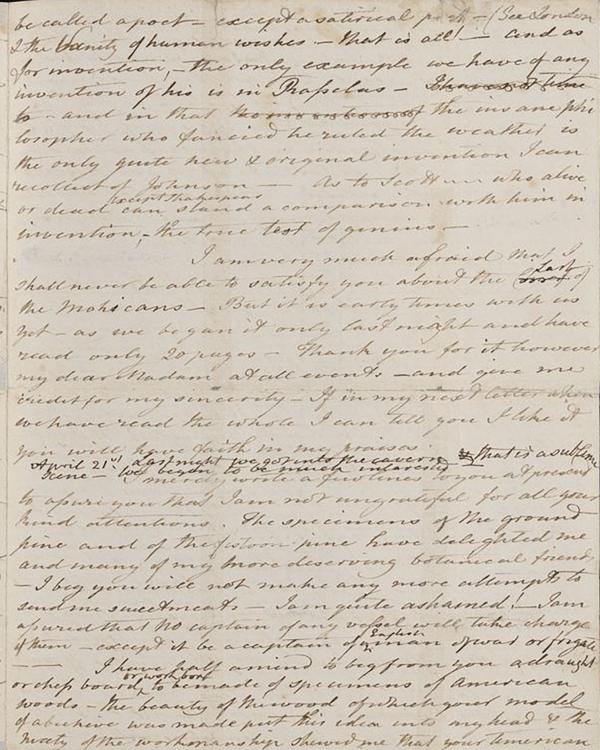 be called a poet – except a satirical poet – (See London
& the Vanity of human wishes – that is all! – and as
for invention, – the only example we have of any
invention of his is in Rasselas –
to – and in that the insane phi
losopher who fancied he ruled the weather is
the only quite new & original invention I can
recollect of Johnson — As to Scott — who alive
except Shakespeare
or dead can stand a comparison with him in
invention, – the true test of genius –
I am very much afraid that I
shall never be able to satisfy you about the Last of
the Mohicans – But it is early times with us
yet – as we began it only last night and have
read only 20 pages – Thank you for it however
my dear Madam at all events – and give me
credit for my sincerity – If in my next letter when
we have read the whole I can tell you I like it
you will have faith in my praises.
April 21st Last night we got into the cavern – that is a sublime
scene – we begin to be much interested
I merely write a few lines to you at present
to assure you that I am not ungrateful for all your
kind attentions. The specimens of the ground
pine and of the pine have delighted me
and many of my more deserving botanical friends
– I beg you will not make any more attempts to
send me sweetmeats – I am quite ashamed! – I am
assured that no captain of any vessel will take charge
English
of them – except it be a captain of a man of war or frigate
— I have half a mind to beg from you a draught
or work box
or chess board, to be made of specimens of American
woods – the beauty of the wood of which your model
of a beehive was made put this idea into my head & the
nicety of the workmanship shewed me that your American